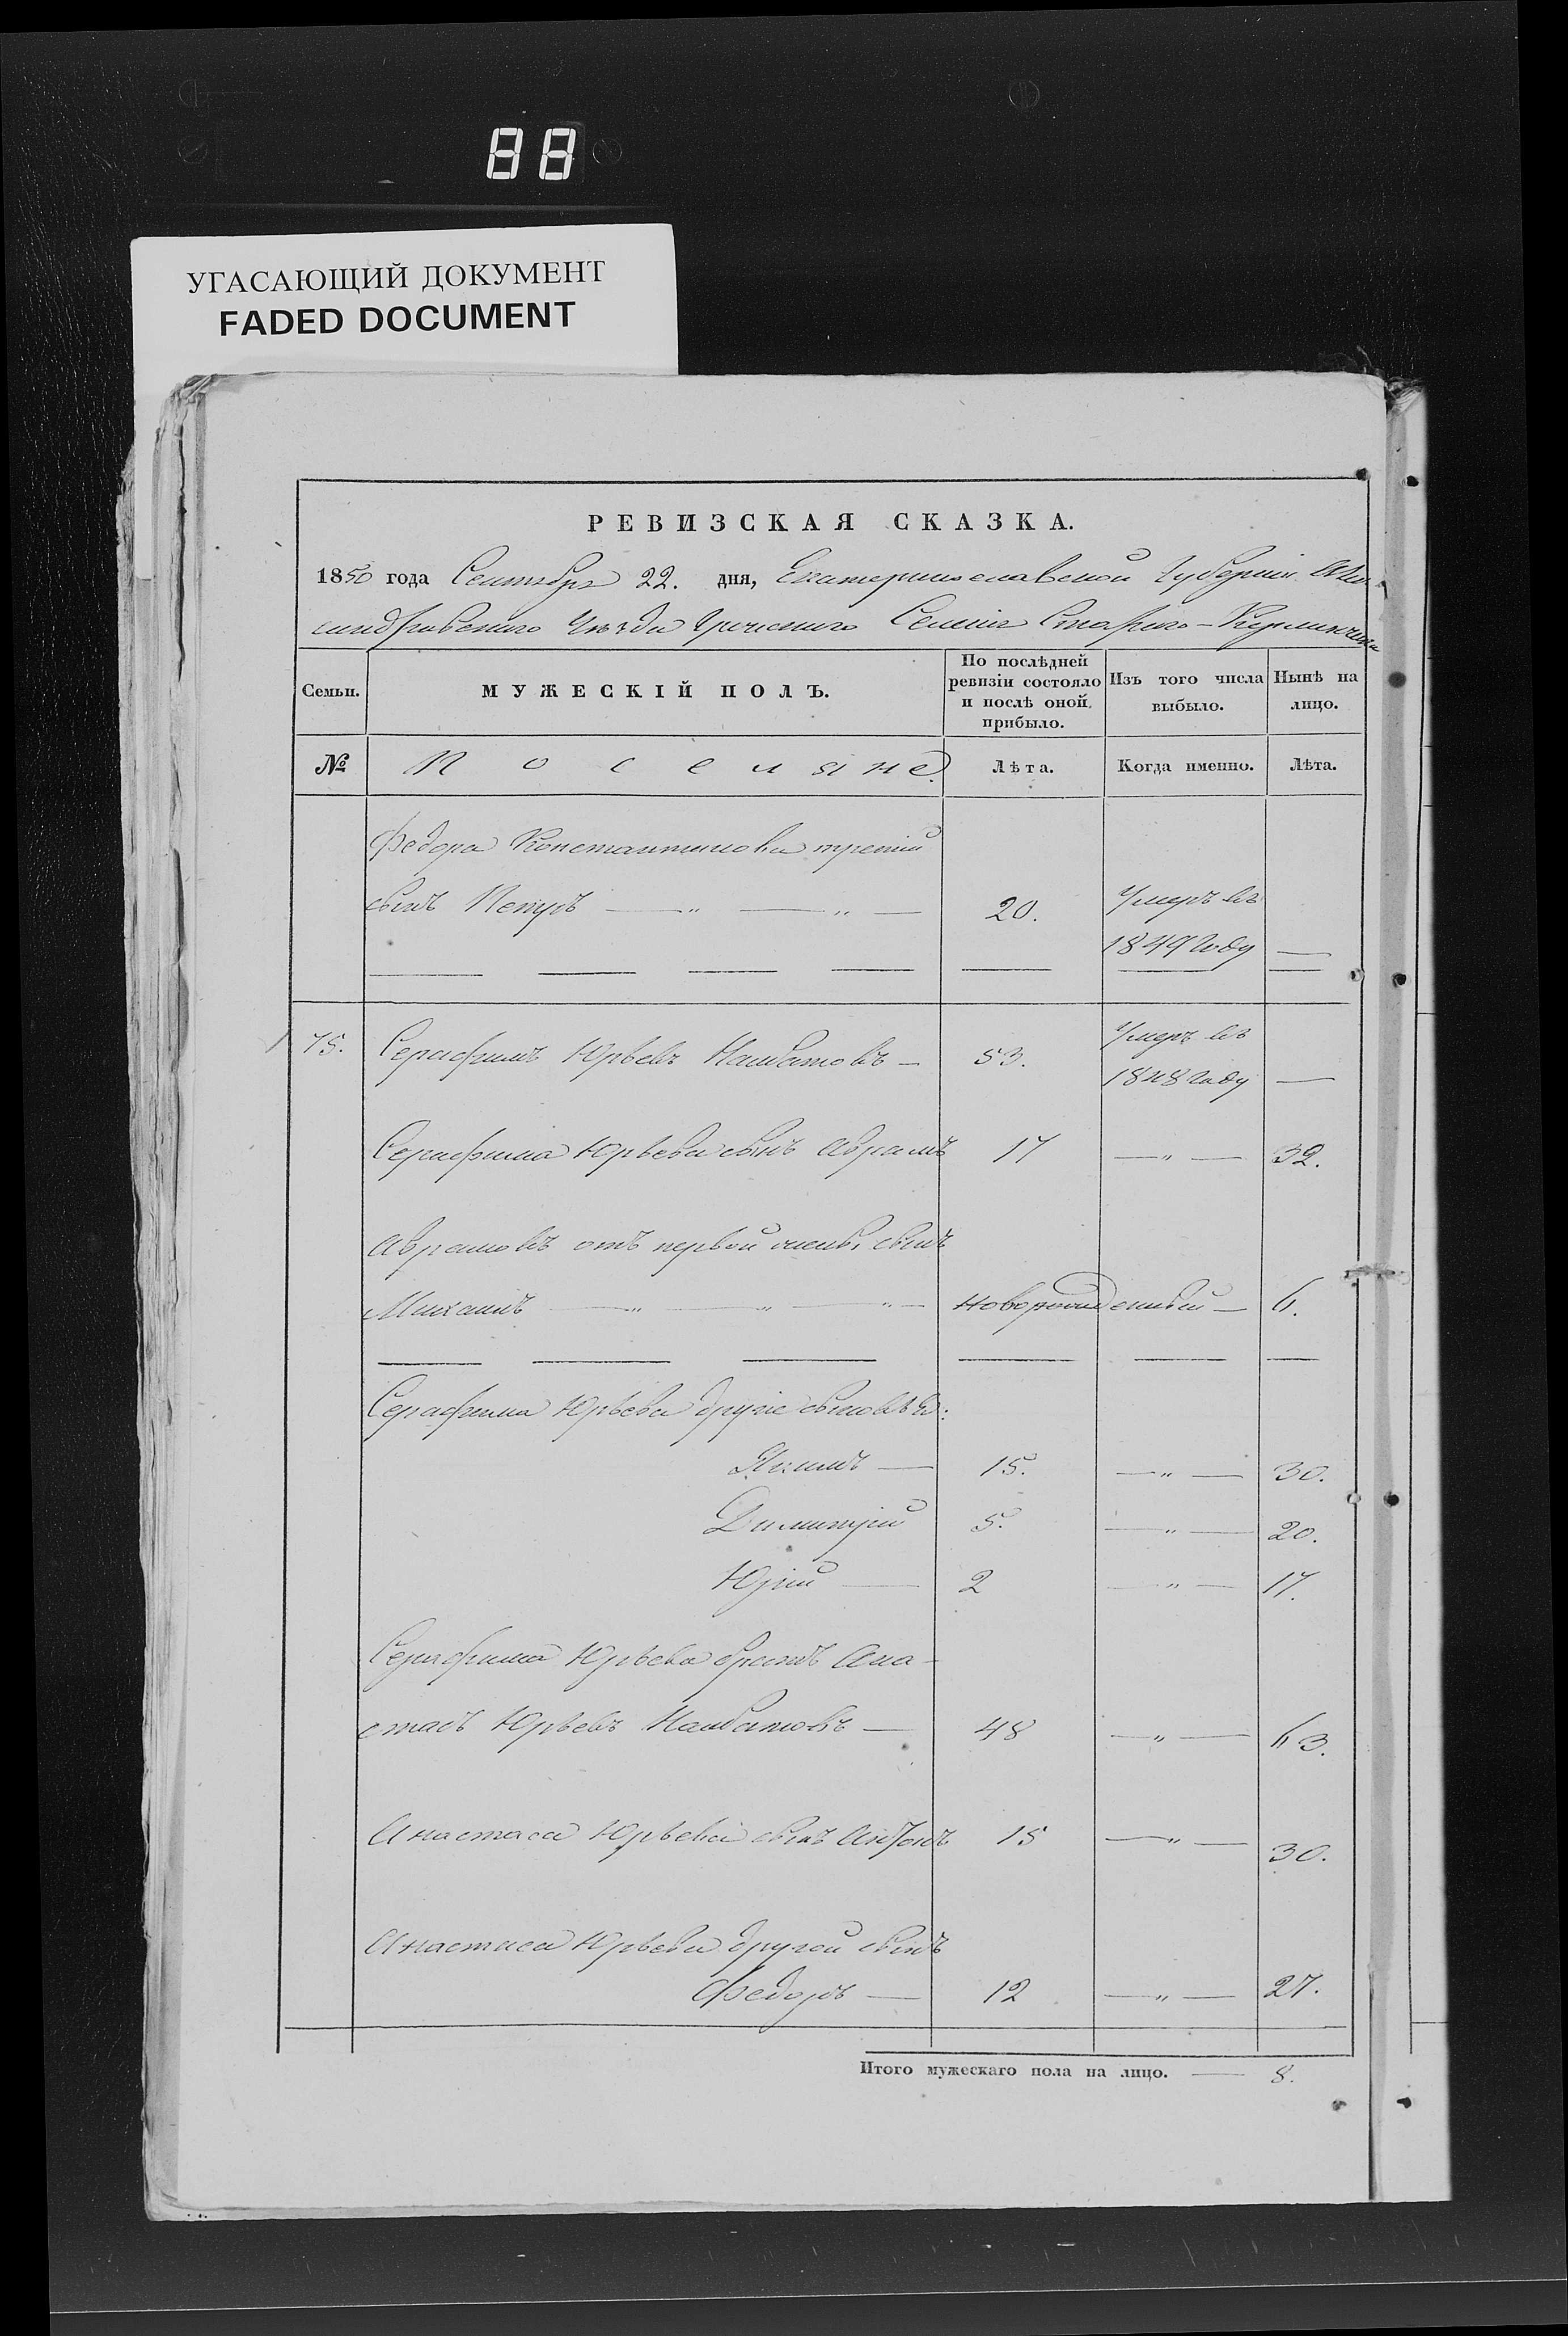 88
УГАСАЮЩИЙ ДОКУМЕНТ
FADED DOCUMENT
РЕВИЗСКАЯ СКАЗКА.
1850 года Сентября 22. дня, Екатеринославской Губерніи Алек-
сандровскаго Уѣзда Греческаго Селенія Стараго-Керменчика
Семьи. МУЖЕСКІЙ ПОЛЪ. По послѣдней ревизіи состояло и послѣ оной прибыло. Изъ того числа выбыло. Нынѣ на лицо.
№ Поселяне. Лѣта. Когда именно. Лѣта.
Федора Константинова третій
сынъ Петръ — " — " — 20. Умеръ въ
1849 году —
75. Серафимъ Юрьевъ — 53. Умеръ въ
1848 году —
Серафима Юрьева сынъ Аврамъ 17 — " — 32.
Аврамовъ отъ первой жены сынъ
Михаилъ — " — " — " — новорожденный — 6.
Серафима Юрьева другіе сыновья:
Якимъ — 15. — " — 30.
Димитрій 5. — " — 20.
Юрій — 2 — " — 17.
Серафима Юрьева братъ Ана-
стасъ Юрьевъ — 48 — " — 63.
Анастаса Юрьева сынъ Антонъ 15 — " — 30.
Анастаса Юрьева другой сынъ
Федоръ — 12 — " — 27.
Итого мужескаго пола на лицо. — 8.